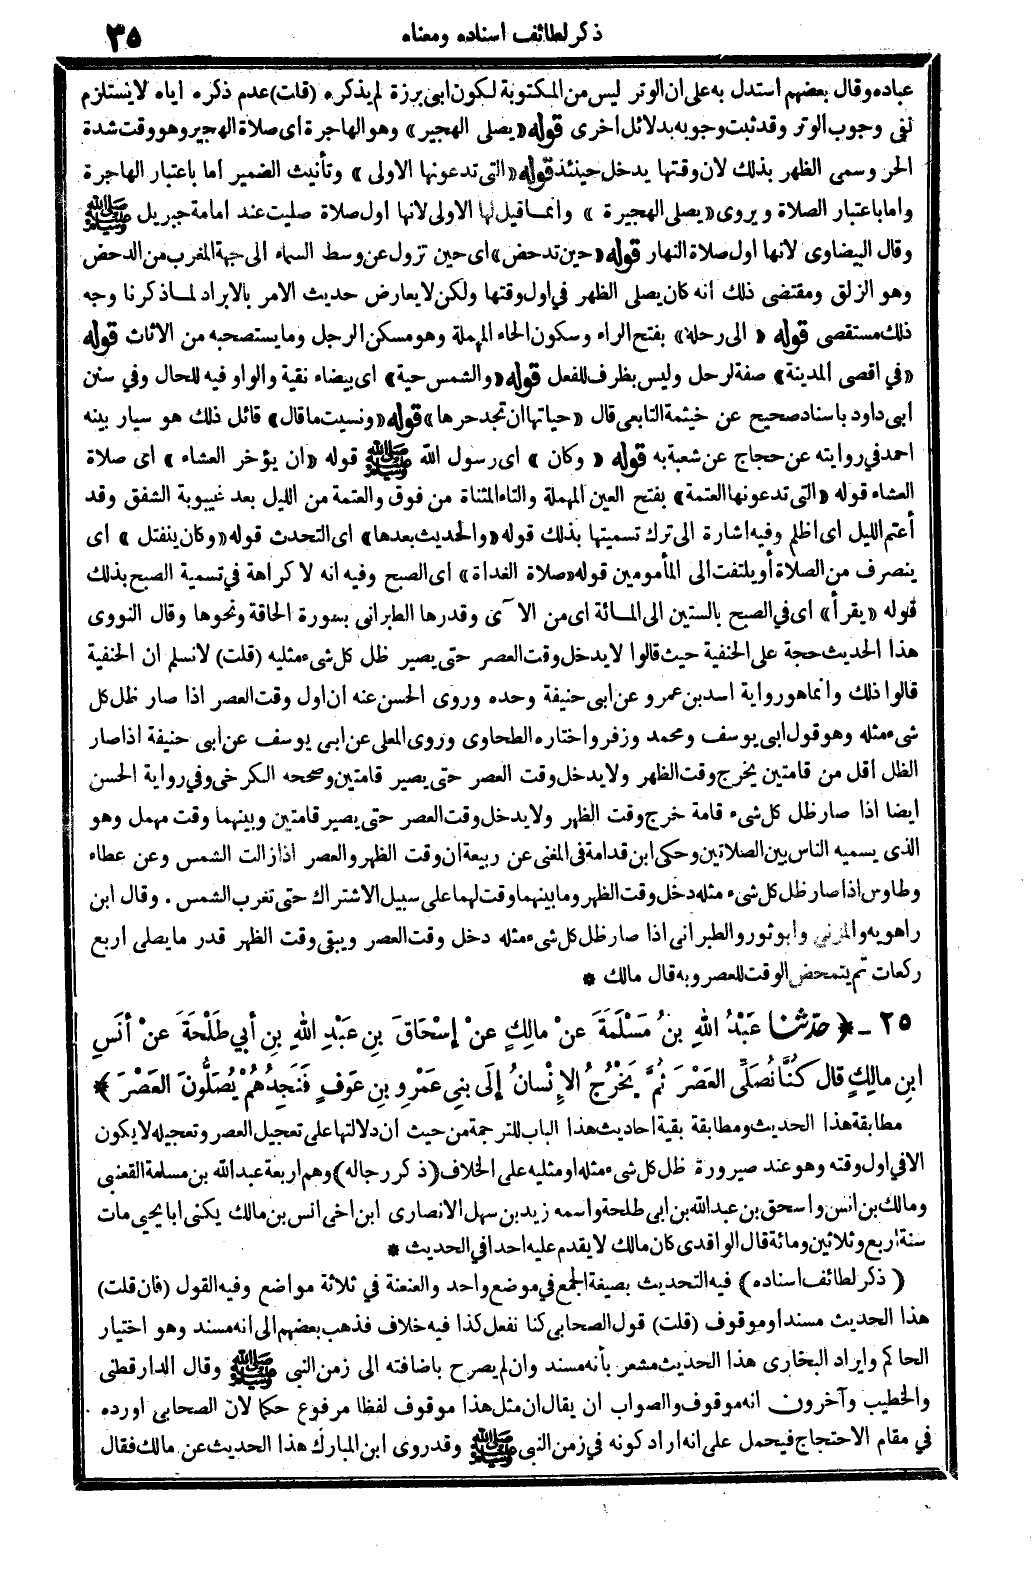 ذكر لطائف اسناده ومعناه ٣٥
عباده وقال بعضهم استدل به على ان الوتر ليس من المكتوبة لكون ابى برزة لم يذكره (قلت) عدم ذكره اياه لا يستلزم
نفى وجوب الوتر وقد ثبت وجوبه بدلائل اخرى قوله «يصلى الهجير» وهو الهاجرة اى صلاة الهجير وهو وقت شدة
الحر وسمى الظهر بذلك لان وقتها يدخل حينئذ قوله «التى تدعونها الاولى» وتأنيث الضمير اما باعتبار الهاجرة
واما باعتبار الصلاة ويروى «يصلى الهجيرة» وانما قيل لها الاولى لانها اول صلاة صليت عند امامة جبريل ﷺ
وقال البيضاوى لانها اول صلاة النهار قوله «حين تدحض» اى حين تزول عن وسط السماء الى جهة المغرب من الدحض
وهو الزلق ومقتضى ذلك انه كان يصلى الظهر في اول وقتها ولكن لا يعارض حديث الامر بالابراد لما ذكرنا وجه
ذلك مستقصى قوله «الى رحله» بفتح الراء وسكون الحاء المهملة وهو مسكن الرجل وما يستصحبه من الاثاث قوله
«في اقصى المدينة» صفة لرحل وليس بظرف للفعل قوله «والشمس حية» اى بيضاء نقية والواو فيه للحال وفي سنن
ابى داود باسناد صحيح عن خيثمة التابعى قال «حياتها ان تجد حرها» قوله «ونسيت ما قال» قائل ذلك هو سيار بينه
احمد في روايته عن حجاج عن شعبة به قوله «وكان» اى رسول الله ﷺ قوله «ان يؤخر العشاء» اى صلاة
العشاء قوله «التى تدعونها العتمة» بفتح العين المهملة والتاء المثناة من فوق والعتمة من الليل بعد غيبوبة الشفق وقد
أعتم الليل اى اظلم وفيه اشارة الى ترك تسميتها بذلك قوله «والحديث بعدها» اى التحدث قوله «وكان ينفتل» اى
ينصرف من الصلاة أو يلتفت الى المأمومين قوله «صلاة الغداة» اى الصبح وفيه انه لا كراهة في تسمية الصبح بذلك
قوله «يقرأ» اى في الصبح بالستين الى المائة اى من الآى وقدرها الطبرانى بسورة الحاقة ونحوها وقال النووى
هذا الحديث حجة على الحنفية حيث قالوا لا يدخل وقت العصر حتى يصير ظل كل شىء مثليه (قلت) لا نسلم ان الحنفية
قالوا ذلك وانما هو رواية اسد بن عمرو عن ابى حنيفة وحده وروى الحسن عنه ان اول وقت العصر اذا صار ظل كل
شىء مثله وهو قول ابى يوسف ومحمد وزفر واختاره الطحاوى وروى المعلى عن ابى يوسف عن ابى حنيفة اذا صار
الظل أقل من قامتين يخرج وقت الظهر ولا يدخل وقت العصر حتى يصير قامتين وصححه الكرخى وفي رواية الحسن
ايضا اذا صار ظل كل شىء قامة خرج وقت الظهر ولا يدخل وقت العصر حتى يصير قامتين وبينهما وقت مهمل وهو
الذى يسميه الناس بين الصلاتين وحكى ابن قدامة في المغنى عن ربيعة ان وقت الظهر والعصر اذا زالت الشمس وعن عطاء
وطاوس اذا صار ظل كل شىء مثله دخل وقت الظهر وما بينهما وقت لهما على سبيل الاشتراك حتى تغرب الشمس . وقال ابن
راهويه والمزني وابو ثور والطبرانى اذا صار ظل كل شىء مثله دخل وقت العصر ويبقى وقت الظهر قدر ما يصلى اربع
ركعات ثم يتمحض الوقت للعصر وبه قال مالك *
٢٥ - ﴿ حدثنا عَبْدُ اللهِ بنُ مَسْلَمَةَ عنْ مالِكٍ عنْ إسْحَاقَ بنِ عَبْدِ اللهِ بنِ أبي طَلْحَةَ عنْ أنَسِ
ابنِ مالِكٍ قال كُنَّا نُصَلِّي العَصْرَ ثُمَّ يَخْرُجُ الإنْسانُ إلَى بَنِي عَمْرِو بنِ عَوْفٍ فَنَجِدُهُمْ يُصَلُّونَ العَصْرَ ﴾
مطابقة هذا الحديث ومطابقة بقية احاديث هذا الباب للترجمة من حيث ان دلالتها على تعجيل العصر وتعجيله لا يكون
الا في اول وقته وهو عند صيرورة ظل كل شىء مثله او مثليه على الخلاف (ذكر رجاله) وهم اربعة عبد الله بن مسلمة القعنبى
ومالك بن انس واسحق بن عبد الله بن ابى طلحة واسمه زيد بن سهل الانصارى ابن اخى انس بن مالك يكنى ابا يحيى مات
سنة اربع وثلاثين ومائة قال الواقدى كان مالك لا يقدم عليه احدا في الحديث *
(ذكر لطائف اسناده) فيه التحديث بصيغة الجمع في موضع واحد والعنعنة في ثلاثة مواضع وفيه القول (فان قلت)
هذا الحديث مسند او موقوف (قلت) قول الصحابى كنا نفعل كذا فيه خلاف فذهب بعضهم الى انه مسند وهو اختيار
الحاكم وايراد البخارى هذا الحديث مشعر بأنه مسند وان لم يصرح باضافته الى زمن النبى ﷺ وقال الدارقطنى
والخطيب وآخرون انه موقوف والصواب ان يقال ان مثل هذا موقوف لفظا مرفوع حكما لان الصحابى اورده
في مقام الاحتجاج فيحمل على انه اراد كونه في زمن النبى ﷺ وقد روى ابن المبارك هذا الحديث عن مالك فقال